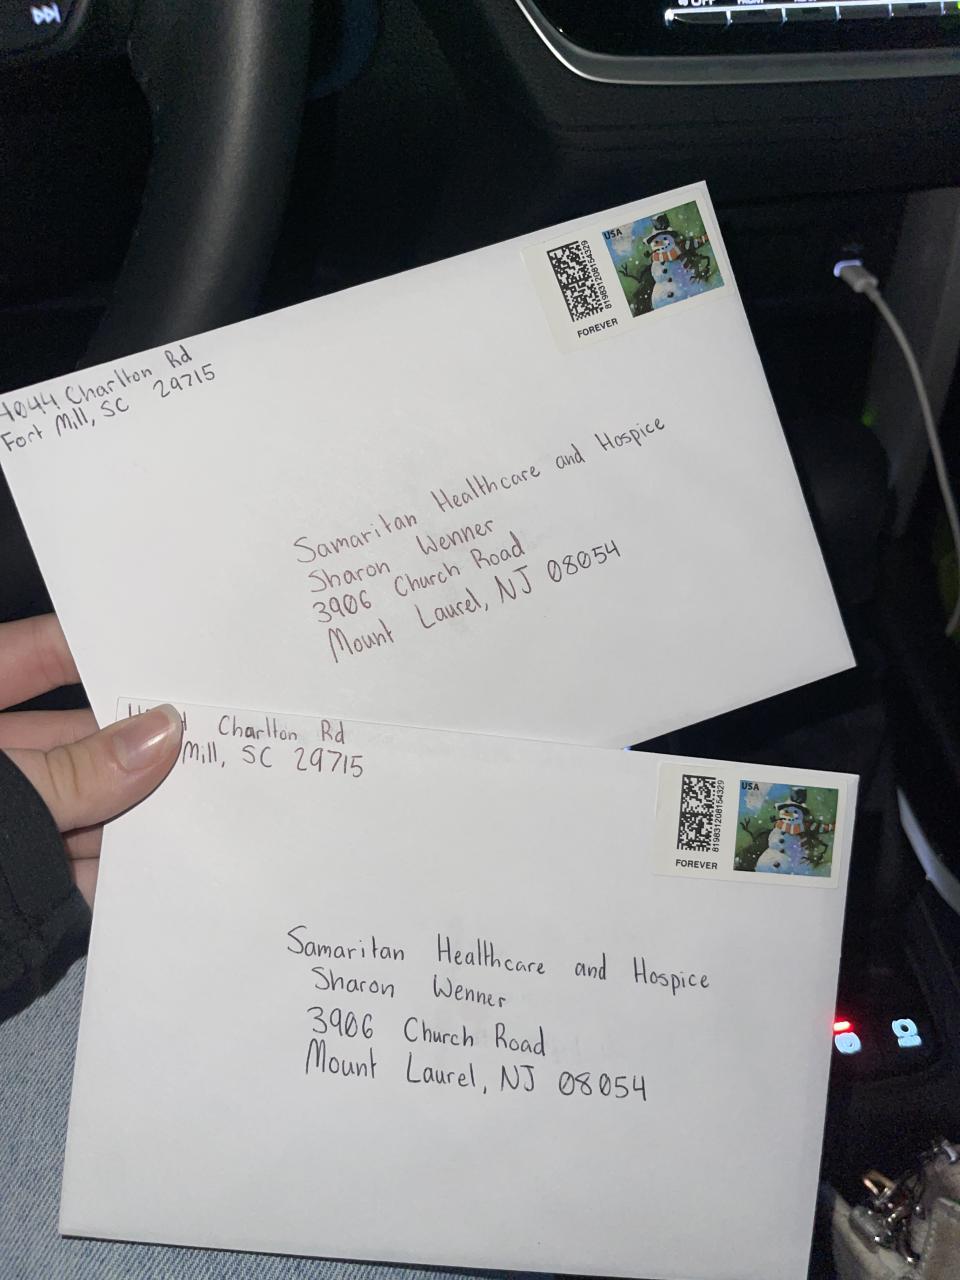 4044 Charlton Rd
Fort Mill, SC 29715
USA
819831208154329
FOREVER
Samaritan Healthcare and Hospice
Sharon Wenner
3906 Church Road
Mount Laurel, NJ 08054
Charlton Rd
Mill, SC 29715
USA
819831208154329
FOREVER
Samaritan Healthcare and Hospice
Sharon Wenner
3906 Church Road
Mount Laurel, NJ 08054